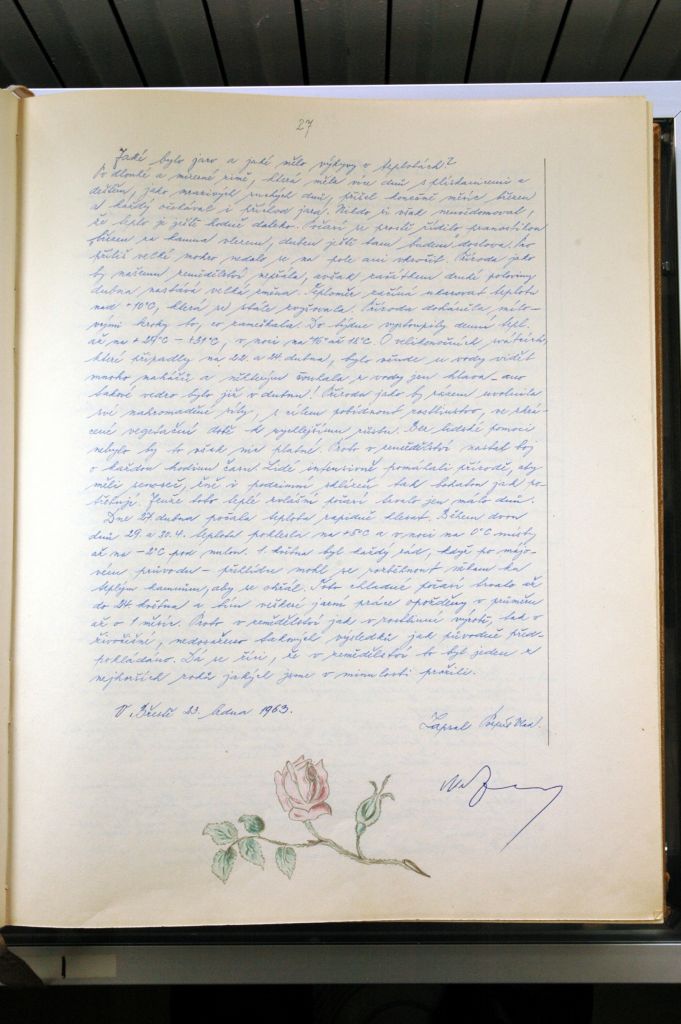 27
Jaké bylo jaro a jaké mělo výkyvy v teplotách?
Po dlouhé a mírené zimě, která měla více dnů s plískanicemi a
deštěm, jako mrazivých suchých dnů, přišel konečně měsíc březen
a každý očekával i příchod jara. Nikdo si však neuvědomoval,
že teplo je ještě hodně daleko. Počasí se prostě řídilo pranostikou
"březen za kamna vlezem, duben ještě tam budem" doslova. Pro
příliš velké mokro, nedalo se na pole ani vkročit. Příroda jako
by našemu zemědělství nepřála, avšak začátkem druhé poloviny
dubna nastává velká změna. Teploměr začíná ukazovat teplotu
nad +10°C, která se stále zvyšovala. Příroda doháněla mílo-
vými kroky to, co zameškala. Do týdne vystoupily denní tepl.
až na +29°C – +31°C, v noci na 16 až 18°C. O velikonočních svátcích,
které připadly na 22. a 24. dubna, bylo všude u vody vidět
mnoho naháčů a některým koukala z vody jen hlava – ano
takové vedro bylo již v dubnu! Příroda jako by rázem uvolnila
své nahromaděné síly, s cílem pobídnout rostlinstvo, ve zkrá-
cené vegetační době k rychlejšímu růstu. Bez lidské pomoci
nebylo by to však nic platné. Proto v zemědělství nastal boj
o každou hodinu času. Lidé intensivně pomáhali přírodě, aby
měli senoseč, žně i podzimní sklizeň tak bohatou jak po-
třebují. Jenže toto teplé počasí trvalo jen málo dnů.
Dne 27. dubna počala teplota rapidně klesat. Během dvou
dnů 29. a 30.4. teplota poklesla na +5°C a v noci na 0°C místy
až na –2°C pod nulou. 1. května byl každý rád, když po májo-
vém průvodu – přihlídce mohl se rozběhnout někam ke
teplým kamnům, aby se ohřál. Toto chladné počasí trvalo až
do 24. května a tím veškeré jarní práce opožděny v průměru
až o 1 měsíc. Proto v zemědělství jak v rostlinné výrobě, tak v
živočišné, nedosaženo takových výsledků jak původně před-
pokládáno. Dá se říci, že v zemědělství to byl jeden z
nejhorších roků jakých jsme v minulosti prožili.
V Březí 23. ledna 1963.
Zapsal